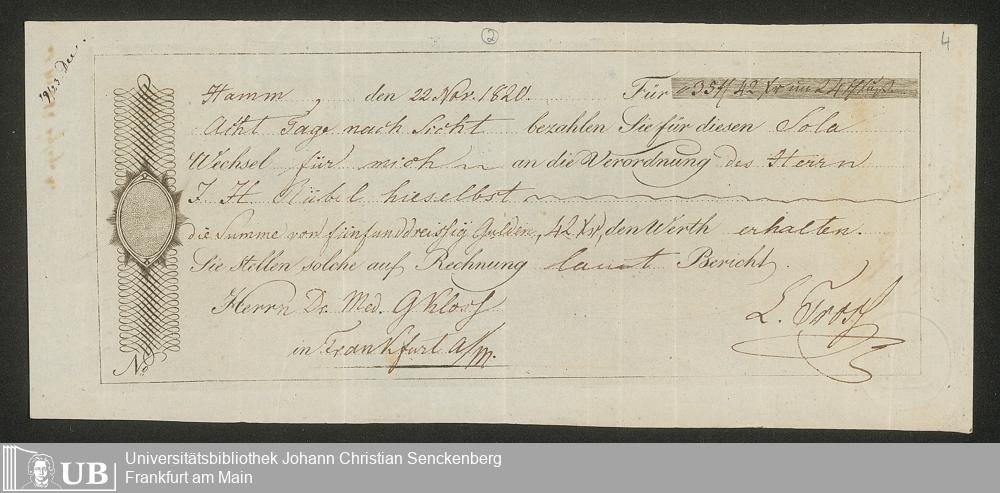 2
4
19/23 Dec.
Hamm, den 22 Nov. 1820. Für 35 f 42 Xr im 24
Acht Tage nach Sicht bezahlen Sie für diesen Sola
Wechsel für mich an die Verordnung des Herrn
J. H. Rübel hieselbst
die Summe von fünfunddreissig Gulden, 42 Xr, den Werth erhalten.
Sie stellen solche auf Rechnung laut Bericht.
Herrn Dr. Med. G Kloss
L. Tross
in Frankfurt a/m.
No
UB
Universitätsbibliothek Johann Christian Senckenberg
Frankfurt am Main